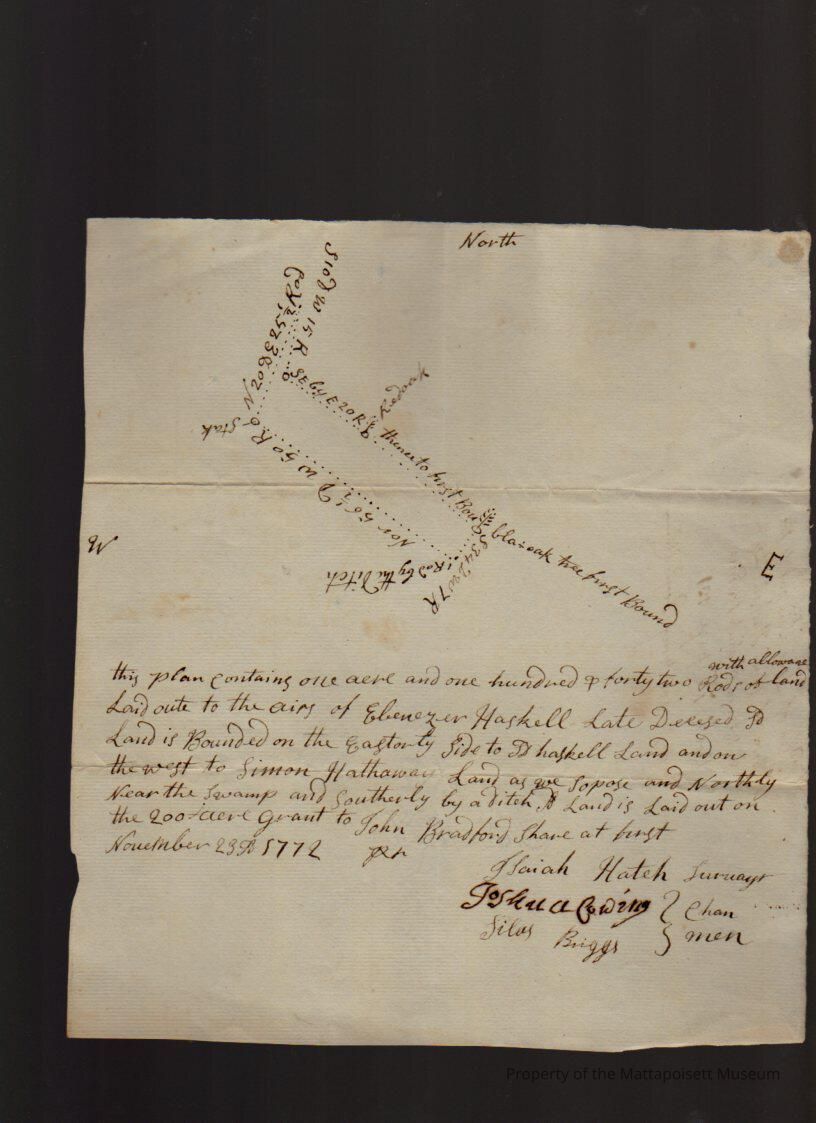 North
S 10 D W 15 R
N 20 D E 25 1/2 Rod
SE by E 20 R
Redoak
Stak
thence to first Bound
Nor 56 1/2 D W 50 R
W
E
blaceoak tree first Bound
S 34 D W 7 R
1 Rod by the Ditch
with allowance
this plan contains one acre and one hundred & forty two Rods of land
Laid oute to the airs of Ebenezer Haskell Late Decesed Sd
Land is Bounded on the Eastorly Side to Sd haskell Land and on
the west to Simon Hathaway Land as we Sopose and Northly
Near the Swamp and Southerly by a ditch Sd Land is Laid out on
the 200 acre Grant to John Bradford Share at first
November 23 D 1772 Per
Isaiah Hatch Survayr
Joshua Cowing } Chan
Silas Briggs } men
Property of the Mattapoisett Museum